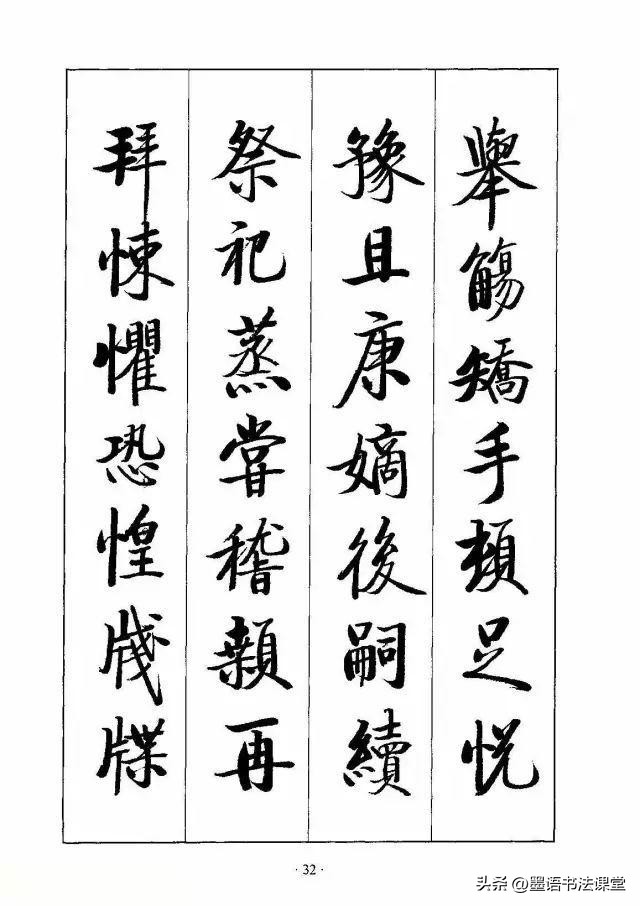 舉觴矯手頓足悅
豫且康嫡後嗣續
祭祀蒸嘗稽顙再
拜悚懼恐惶牋牒
·32·
头条@墨语书法课堂